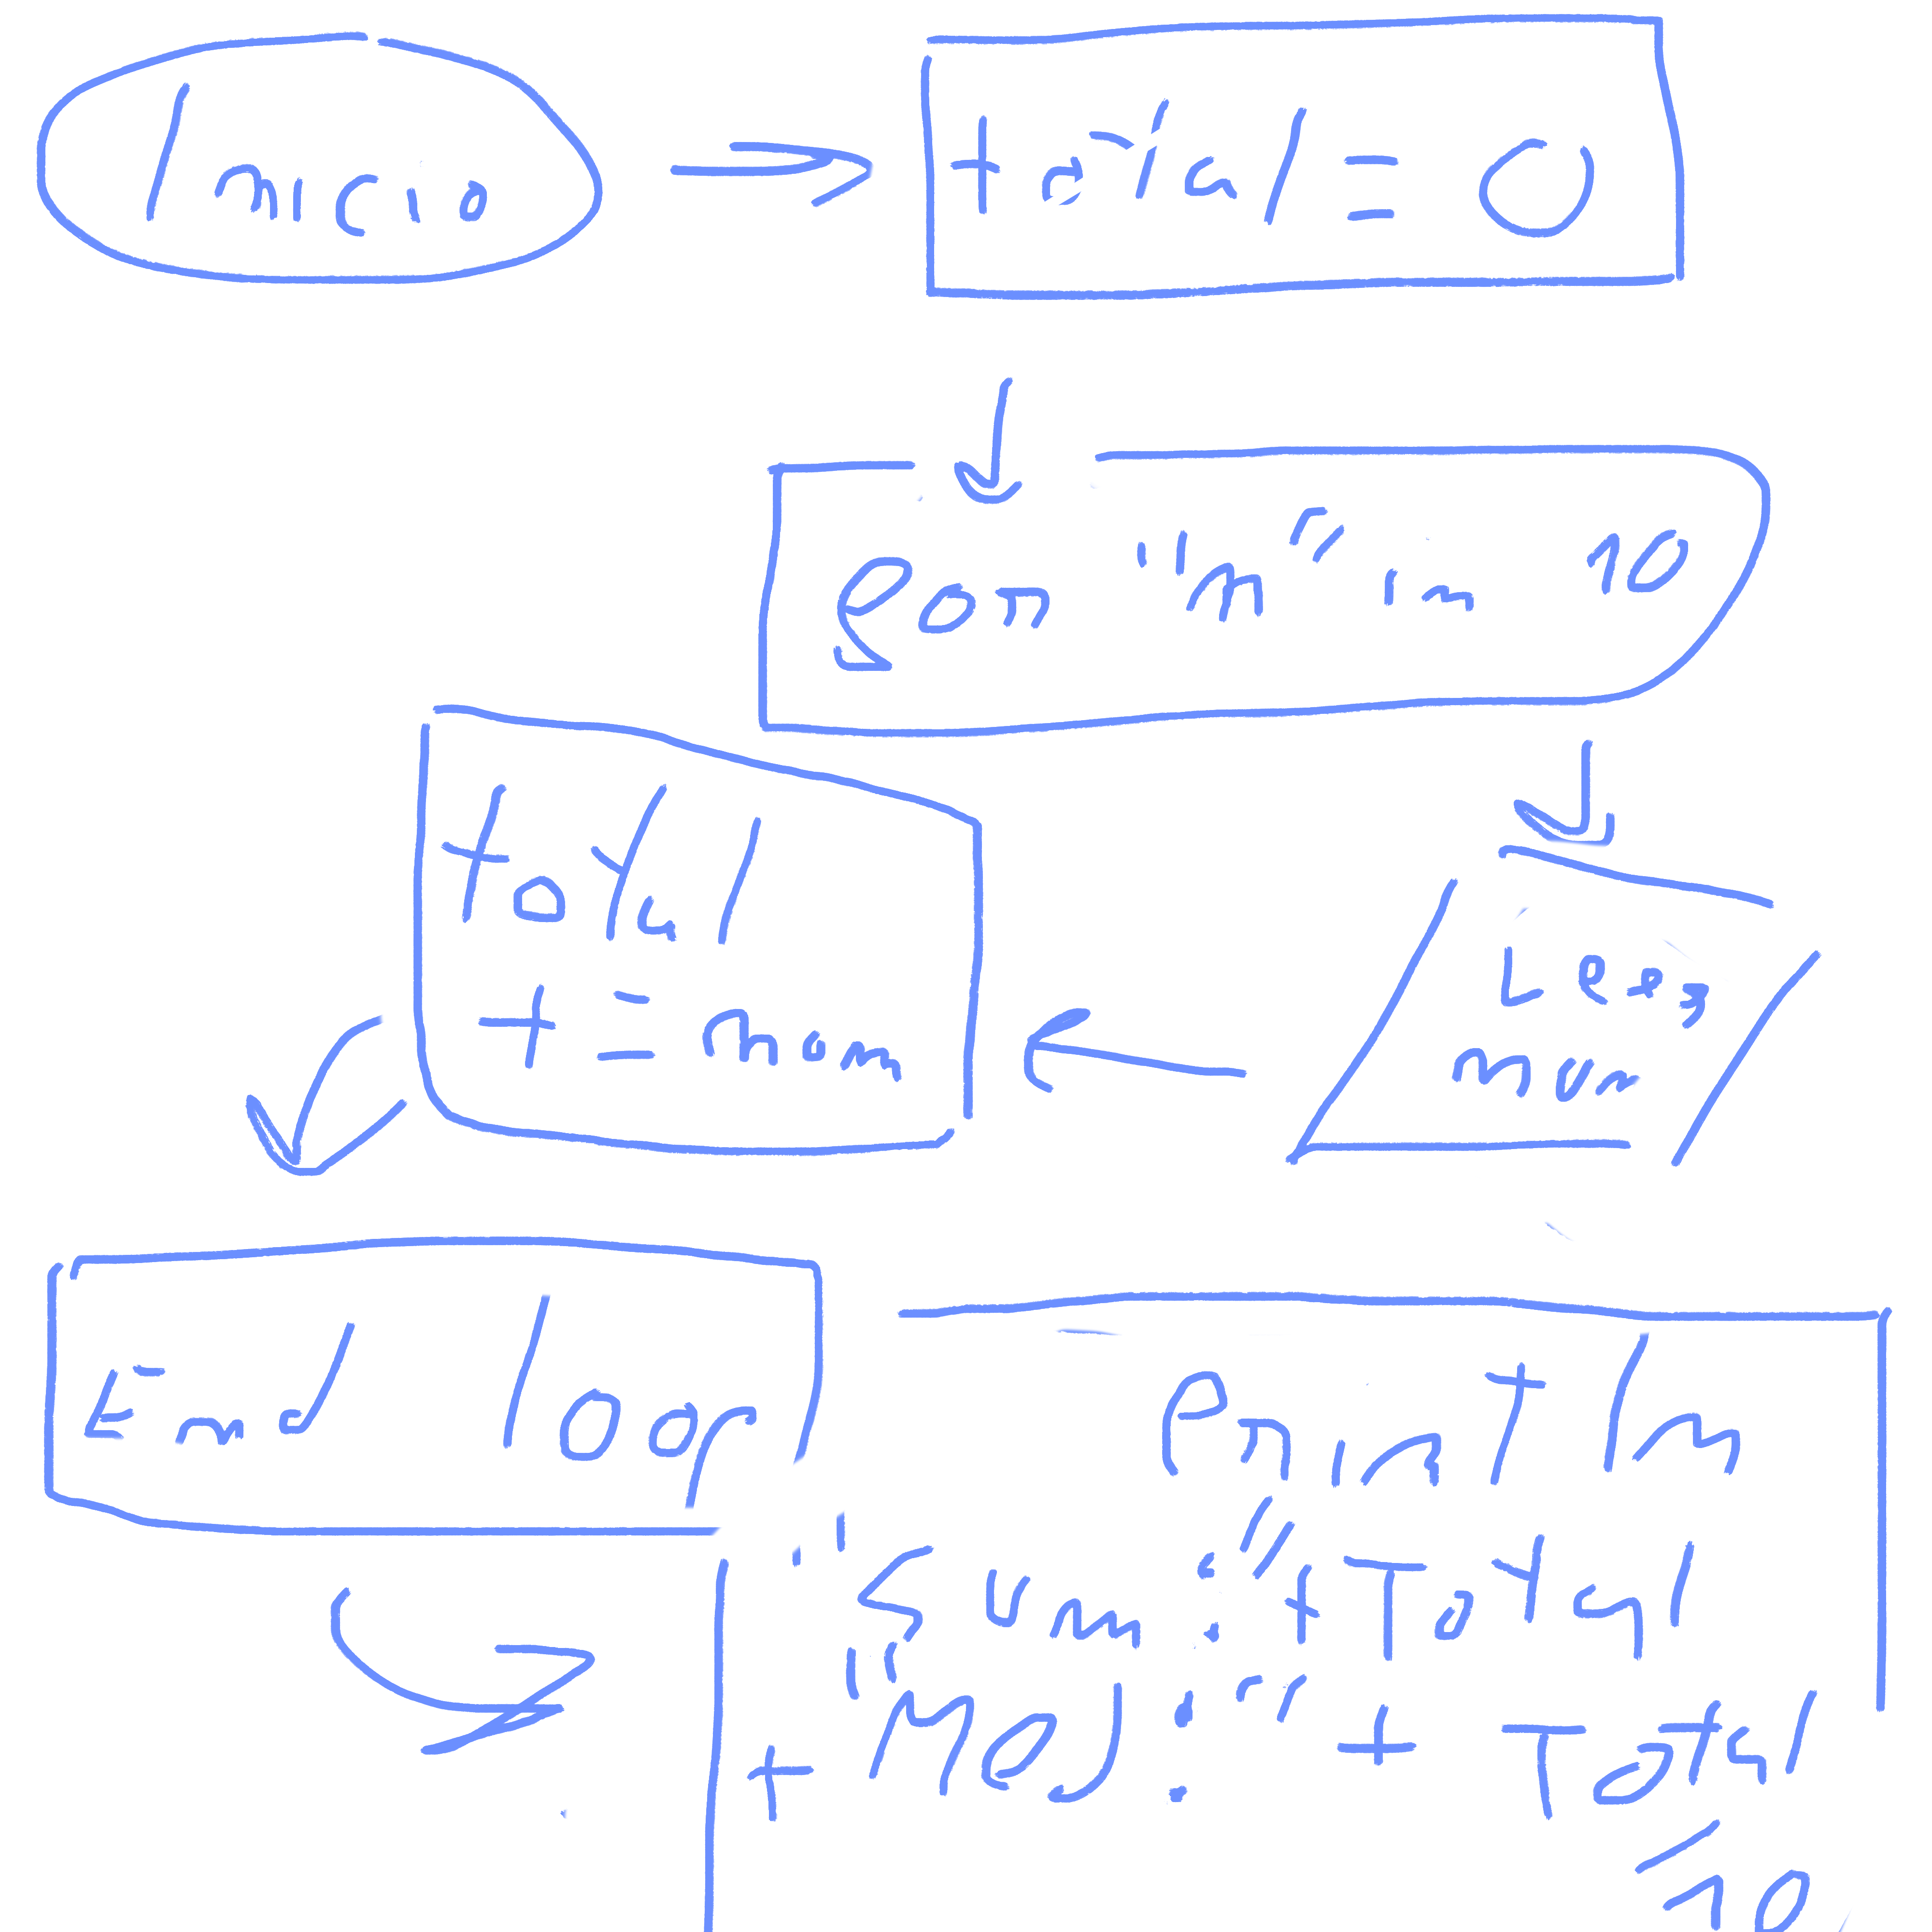 Inicio
total = 0
for "n" in 10
total
+= num
Leer
num
End loop
Println
"Sum:" + Total
+ "Med:" + Total
/10